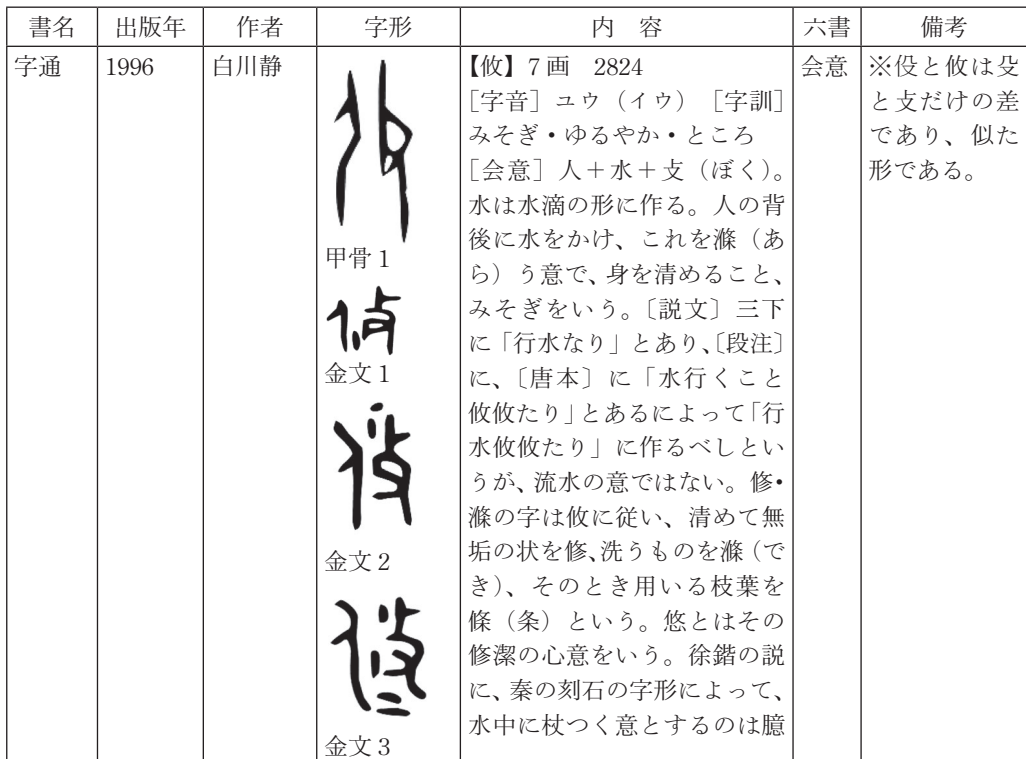 書名 出版年 作者 字形 内 容 六書 備考
字通 1996 白川静
甲骨1
金文1
金文2
金文3
【攸】7画 2824
［字音］ユウ（イウ）［字訓］
みそぎ・ゆるやか・ところ
［会意］人＋水＋攴（ぼく）。
水は水滴の形に作る。人の背
後に水をかけ、これを滌（あ
ら）う意で、身を清めること、
みそぎをいう。〔説文〕三下
に「行水なり」とあり、〔段注〕
に、〔唐本〕に「水行くこと
攸攸たり」とあるによって「行
水攸攸たり」に作るべしとい
うが、流水の意ではない。修・
滌の字は攸に従い、清めて無
垢の状を修、洗うものを滌（で
き）、そのとき用いる枝葉を
條（条）という。悠とはその
修潔の心意をいう。徐鍇の説
に、秦の刻石の字形によって、
水中に杖つく意とするのは臆
会意
※伇と攸は殳
と攴だけの差
であり、似た
形である。